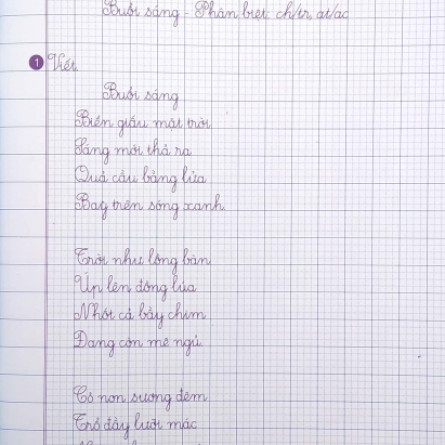 Buổi sáng - Phân biệt: ch/tr, at/ac
1 Viết
Buổi sáng
Biển giấu mặt trời
Sáng mới thả ra
Quả cầu bằng lửa
Bay trên sóng xanh
Trời như lồng bàn
Úp lên đồng lúa
Nhốt cả bầy chim
Đang còn mê ngủ
Cỏ non sương đêm
Trổ đầy lưỡi mác